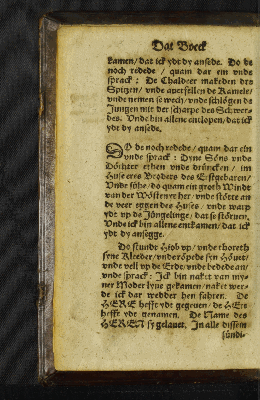 Dat Boeck
kamen/ dat ick ydt dy ansede. Do he
noch redede / quam dar ein vnde
sprack: De Chaldeer makeden dre
Spitzen/ vnde auerfellen de Kamele/
vnde nemen se wech/ vnde schlögen de
Jungen mit der scharpe des Schwer-
des. Vnde bin allene entlopen/ dat ick
ydt dy ansede.
DO he noch redede/ quam dar ein/
vnde sprack: Dyne Söns vnde
Döchter ethen vnde drüncken/ im
Huse eres Broders des Erstgebaren/
Vnde sühe/ do quam ein groth Windt
van der Wöstenye her/ vnde stötte an
de veer eggen des Huses / vnde warp
ydt vp de Jüngelinge/ dat se störuen.
Vnde ick bin allene entkamen/ dat ick
ydt dy ansegge.
Do stundt Hiob vp/ vnde thoreth
sene Kleeder/ vnde röpede syn Höuet/
vnde vell vp de Erde/ vnde bedede an/
vnde sprack: Ick bin naket van my-
ner Moder lyue gekamen/ naket wer-
de ick dar wedder hen fahren. De
HERE hefft ydt gegeuen/ de HEre
hefft ydt genamen. De Name des
HEREN sy gelauet. In alle dissem
sündi-